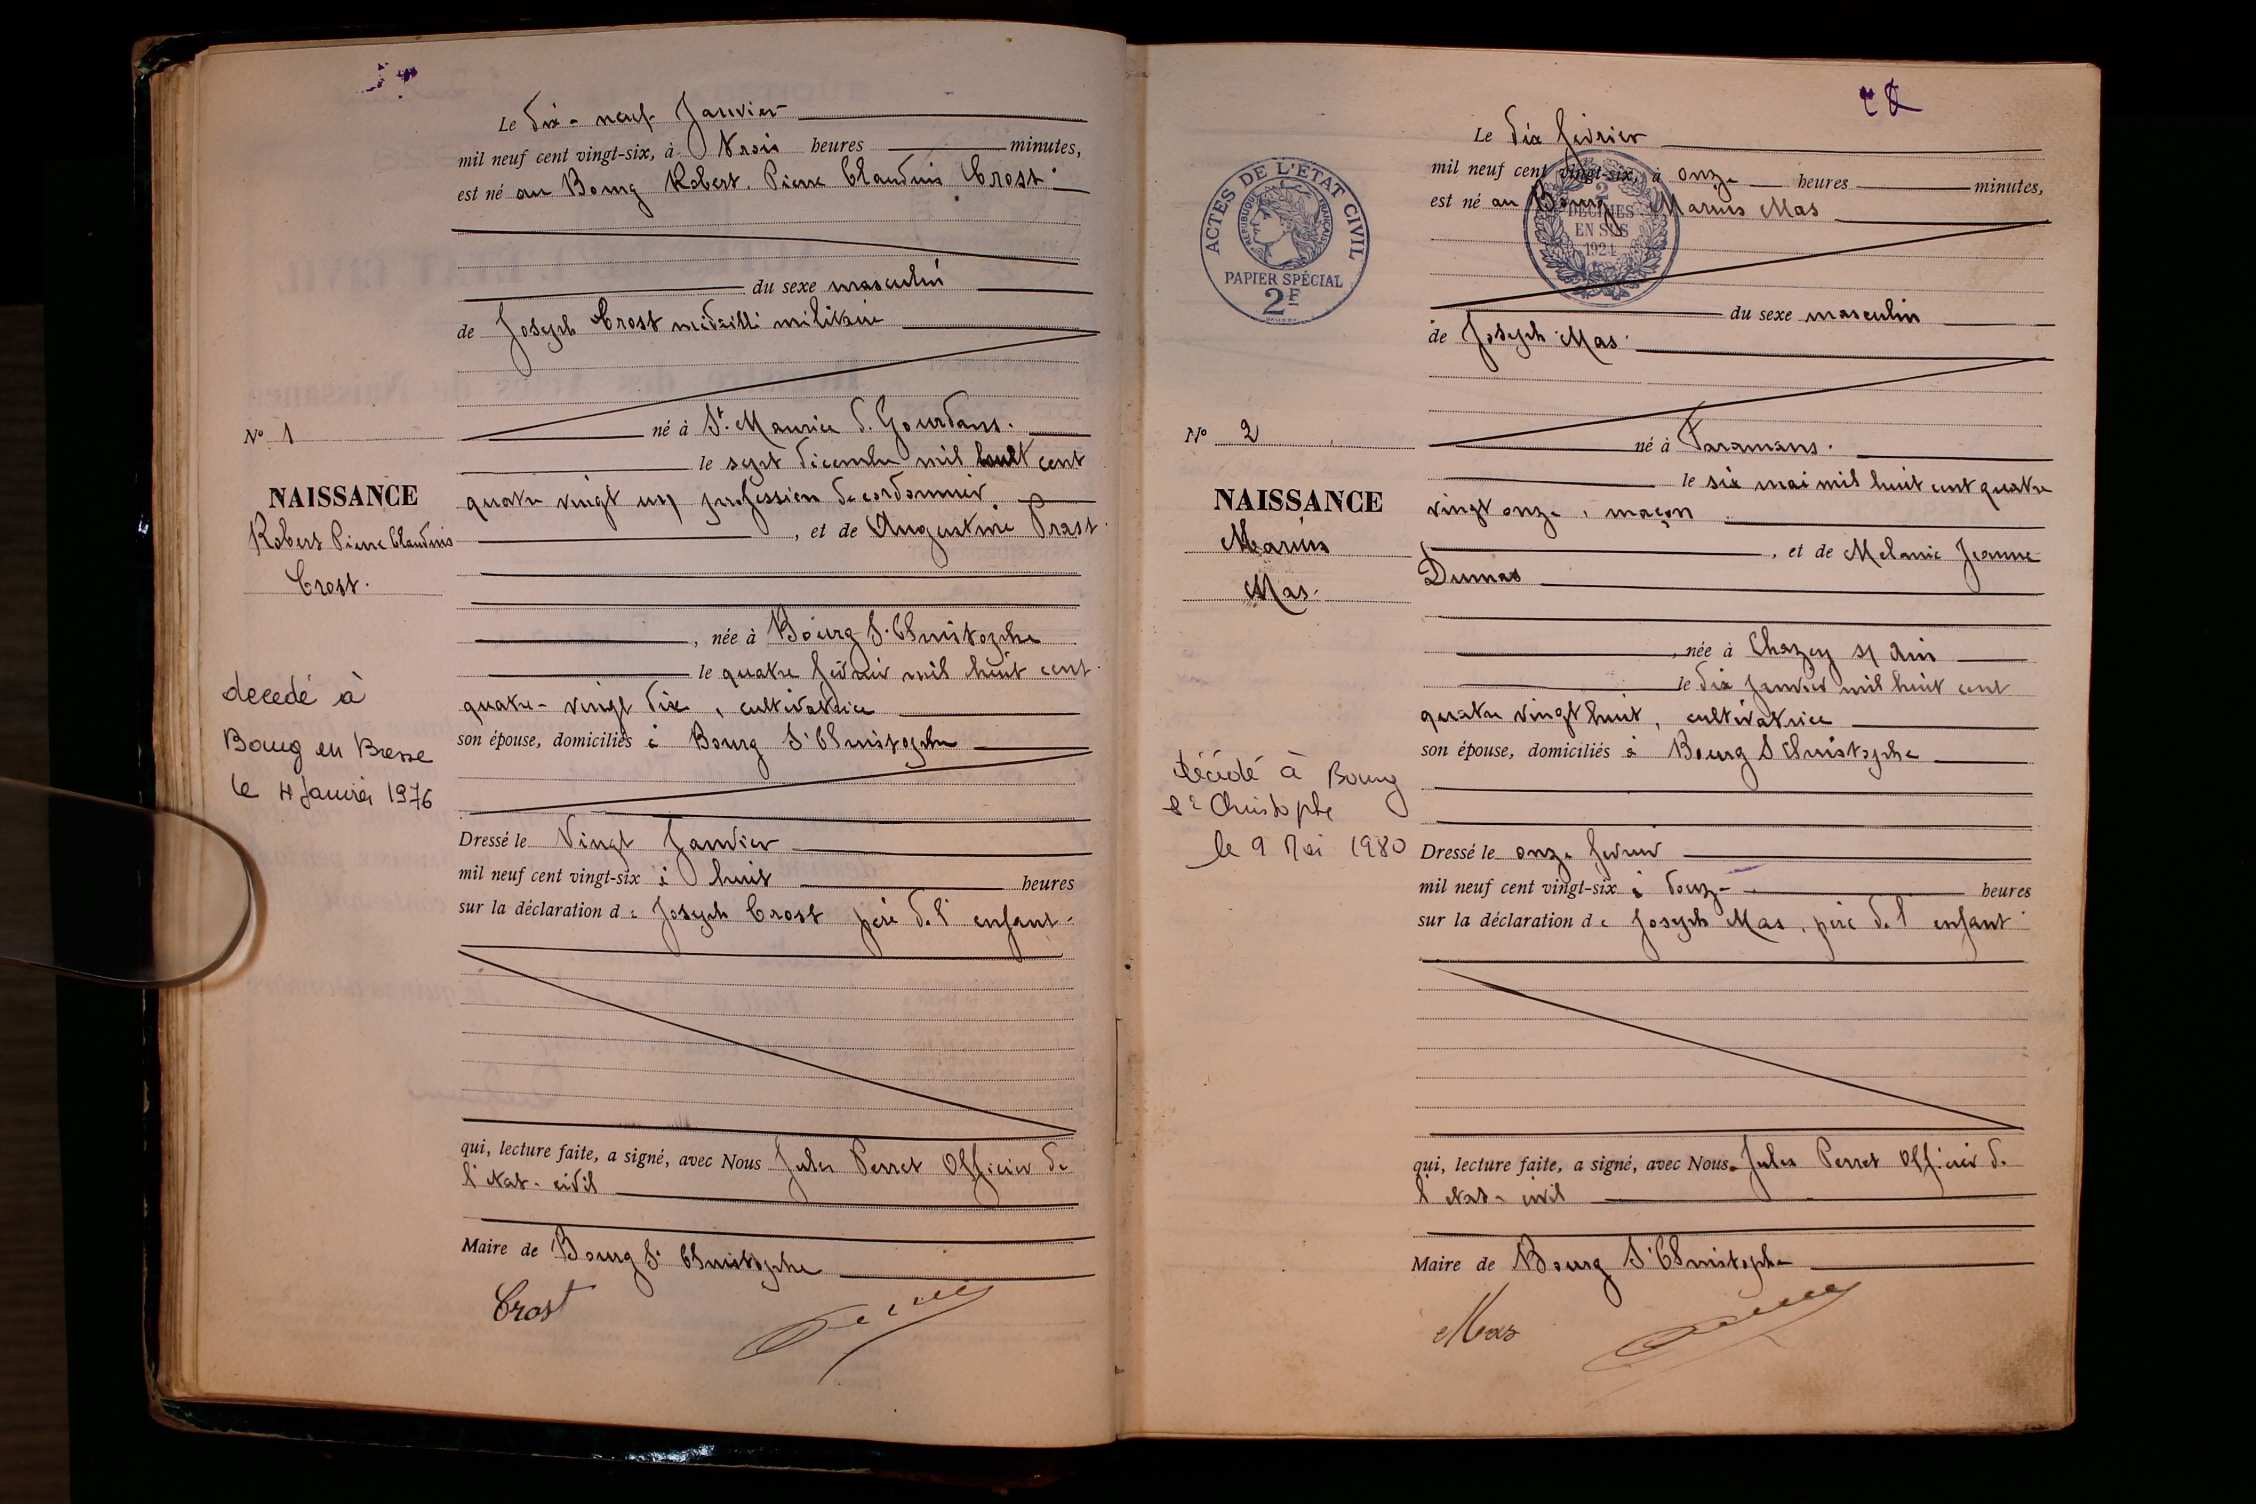 Le dix-neuf Janvier
mil neuf cent vingt-six, à trois heures minutes,
est né au Bourg Robert. Pierre Claudius Crost.
du sexe masculin
de Joseph Crost médaillé militaire
né à St. Maurice d. Gourdans.
le sept décembre mil huit cent
quatre vingt un profession de cordonnier
, et de Augustine Prast
, née à Bourg S. Christophe
le quatre février mil huit cent
quatre-vingt dix, cultivatrice
son épouse, domiciliés à Bourg St Christophe
Dressé le Vingt Janvier
mil neuf cent vingt-six à huit heures
sur la déclaration de Joseph Crost père de l'enfant.
qui, lecture faite, a signé, avec Nous Jules Perret Officier de
l'état-civil
Maire de Bourg St Christophe
Crost
No 1
NAISSANCE
Robert Pierre Claudius
Crost.
decedé à
Bourg en Bresse
le 4 Janvier 1976
Le dix février
mil neuf cent vingt-six, à onze heures minutes,
est né au Bourg Marius Mas
du sexe masculin
de Joseph Mas.
né à Faramans.
le six mai mil huit cent quatre
vingt onze, maçon
, et de Melanie Jeanne
Dumas
, née à Chazey s/ Ain
le dix janvier mil huit cent
quatre vingt huit, cultivatrice
son épouse, domiciliés à Bourg St Christophe
Dressé le onze février
mil neuf cent vingt-six à douze heures
sur la déclaration de Joseph Mas, père de l'enfant
qui, lecture faite, a signé, avec Nous Jules Perret Officier de
l'état-civil
Maire de Bourg St Christophe
Mas
ACTES DE L'ÉTAT CIVIL
RÉPUBLIQUE FRANÇAISE
PAPIER SPÉCIAL
2F
2
DÉCIMES
EN SUS
1924
No 2
NAISSANCE
Marius
Mas.
décédé à Bourg
St Christophe
le 9 Mai 1980